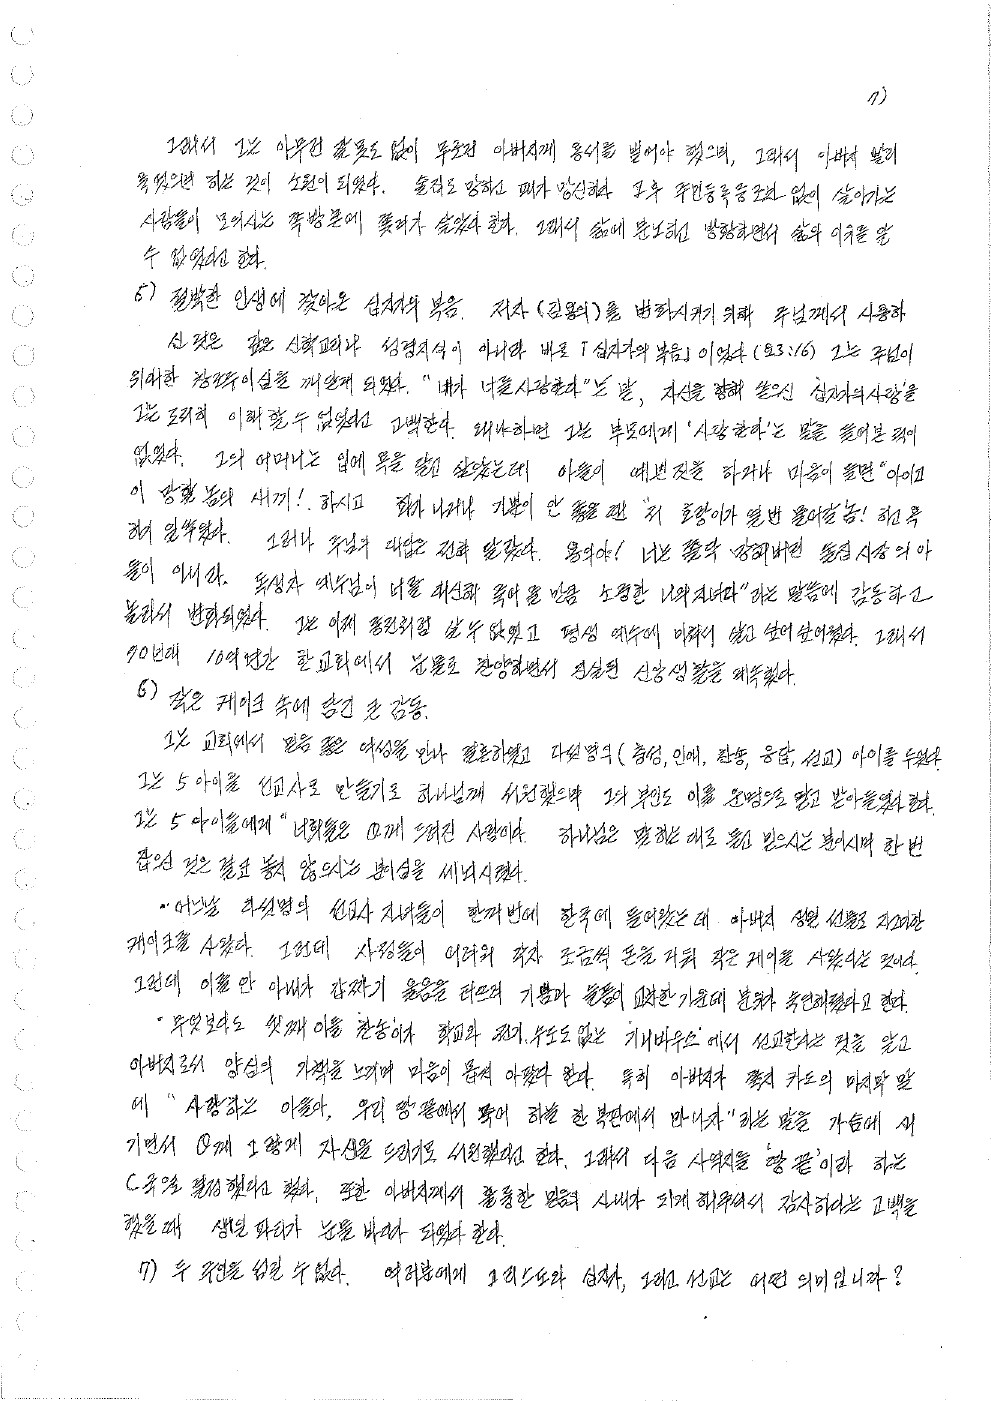 7)
그래서 그는 아무런 잘못도 없이 무조건 아버지께 용서를 빌어야 했으며, 그래서 아버지 빨리
죽었으면 하는 것이 소원이 되었다. 술집도 망하고 패가 망신하다 그후 주민등록증조차 없이 살아가는
사람들이 모여사는 쪽방촌에 쫓겨가 살았다 한다. 그래서 삶에 분노하고 방황하면서 삶의 이유를 알
수 없었다고 한다.
5) 절박한 인생에 찾아온 십자가의 복음. 저자(김용의)를 변화시키기 위해 주님께서 사용하
신 것은 깊은 신학교리나 성경지식이 아니라 바로 「십자가의 복음」이었다(요3:16) 그는 주님이
위대한 창조주이심을 깨닫게 되었다. "내가 너를 사랑한다"는 말, 자신을 향해 쏟으신 '십자가의 사랑'을
그는 도저히 이해할 수 없었다고 고백한다. 왜냐하면 그는 부모에게 '사랑한다'는 말을 들어본 적이
없었다. 그의 어머니는 입에 욕을 달고 살았는데 아들이 예쁜 짓을 하거나 마음이 들면 "아이고
이 망할 놈의 새끼! 하시고 화가 나거나 기분이 안 좋을 땐 "저 호랑이가 열번 물어갈 놈! 하고 욕
하기 일쑤였다. 그러나 주님의 대답은 전혀 달랐다. 용의야! 너는 쫄딱 망해버린 술집 사장의 아
들이 아니라. 독생자 예수님이 너를 대신해 죽어 줄 만큼 소중한 나의 자녀라"라는 말씀에 감동하고
놀라서 변화되었다. 그는 이제 종전처럼 살 수 없었고 평생 예수에 미쳐서 살고 싶어 싶어졌다. 그래서
70년대 10여년간 한 교회에서 눈물로 찬양하면서 진실된 신앙생활을 계속했다.
6) 작은 케이크 속에 담긴 큰 감동.
그는 교회에서 믿음 좋은 여성을 만나 결혼하였고 다섯명의(충성, 인애, 찬송, 응답, 선교) 아이를 두었다.
그는 5 아이를 선교사로 만들기로 하나님께 서원했으며 그의 부인도 이를 운명으로 알고 받아들였다 한다.
그는 5 아이들에게 "너희들은 께 드려진 사람이다. 하나님은 말하는 대로 듣고 믿으시는 분이시며 한 번
잡으신 것은 결코 놓지 않으시는 분이심을 세뇌시켰다.
· 어느날 다섯명의 선교사 자녀들이 한꺼번에 한국에 들어왔는데 아버지 생일 선물로 자그마한
케이크를 사왔다. 그런데 사정들이 어려워 각자 조금씩 돈을 거둬 작은 케이크를 사왔다는 것이다.
그런데 이를 안 아내가 갑자기 울음을 터뜨려 기쁨과 슬픔이 교차한 가운데 분위가 숙연해졌다고 한다.
· 무엇보다도 셋째 아들 '찬송'이가 학교와 전기, 수도도 없는 '키나바우소'에서 선교한다는 것을 알고
아버지로서 양심의 가책을 느끼며 마음이 몹시 아팠다 한다. 특히 아버지가 쪽지 카드의 마지막 말
에 "사랑하는 아들아, 우리 땅 끝에서 죽어 하늘 한 복판에서 만나자"라는 말을 가슴에 새
기면서 께 그렇게 자신을 드리기로 서원했다고 한다. 그래서 다음 사역지를 '땅 끝'이라 하는
C국으로 결정했다고 했다. 또한 아버지께서 훌륭한 믿음의 사내가 되게 해주셔서 감사하다는 고백을
했을 때 생일 파티가 눈물 바다가 되었다 한다.
7) 두 주인을 섬길 수 없다. 여러분에게 그리스도와 십자가, 그리고 선교는 어떤 의미입니까?